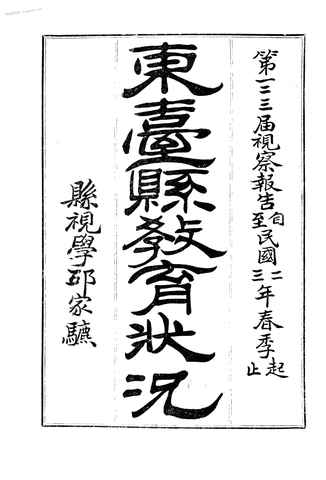 第一二三屆視察報告自至民國二三年春季起止
東臺縣教育狀況
縣視學邱家驤